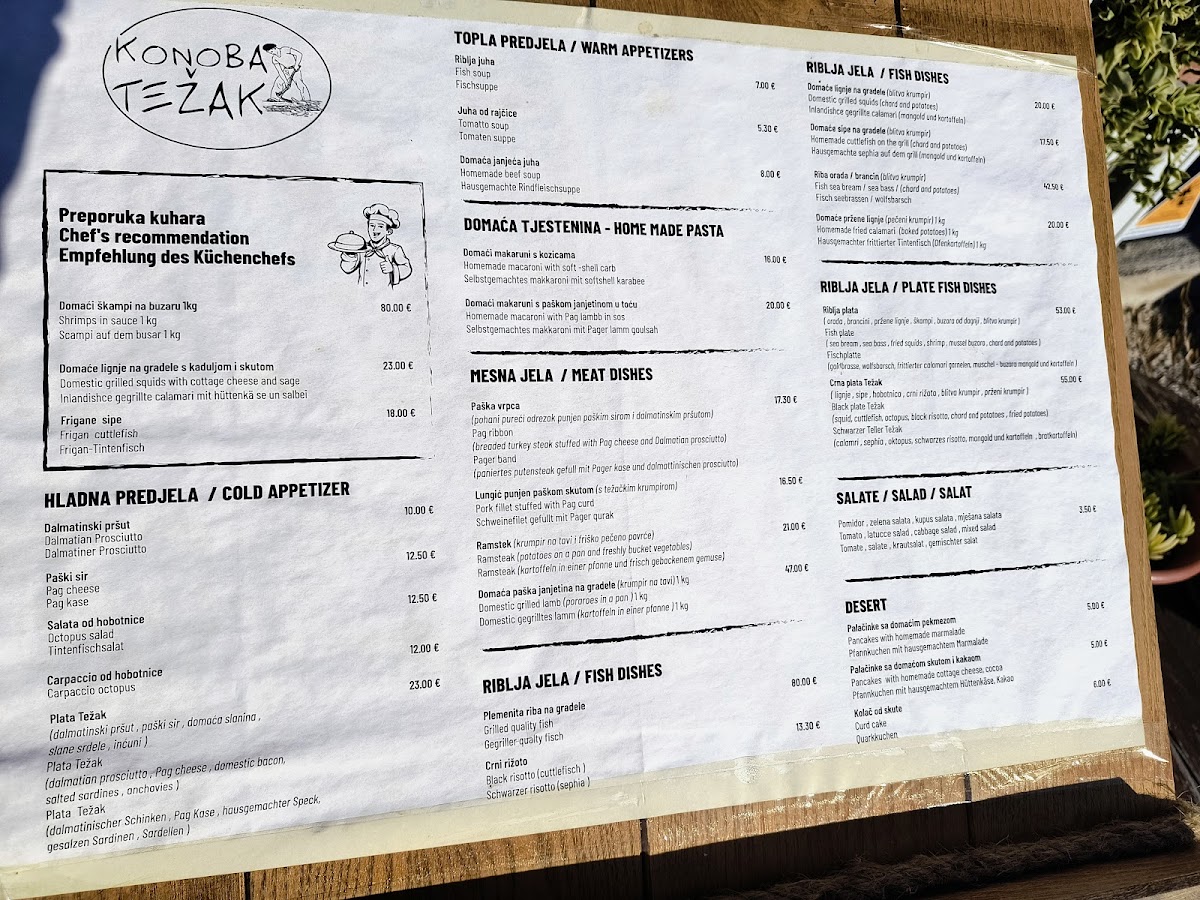 KONOBA
TEŽAK
Preporuka kuhara
Chef's recommendation
Empfehlung des Küchenchefs
Domaći škampi na buzaru 1kg 80.00 €
Shrimps in sauce 1 kg
Scampi auf dem busar 1 kg
Domaće lignje na gradele s kaduljom i skutom 23.00 €
Domestic grilled squids with cottage cheese and sage
Inlandishce gegrillte calamari mit hüttenkä se un salbei
Frigane sipe 18.00 €
Frigan cuttlefish
Frigan-Tintenfisch
HLADNA PREDJELA / COLD APPETIZER
Dalmatinski pršut 10.00 €
Dalmatian Prosciutto
Dalmatiner Prosciutto
Paški sir 12.50 €
Pag cheese
Pag kase
Salata od hobotnice 12.50 €
Octopus salad
Tintenfischsalat
Carpaccio od hobotnice 12.00 €
Carpaccio octopus
Plata Težak 23.00 €
(dalmatinski pršut , paški sir , domaća slanina ,
slane srdele , inćuni )
Plata Težak
(dalmatian prosciutto , Pag cheese , domestic bacon,
salted sardines , anchovies )
Plata Težak
(dalmatinischer Schinken , Pag Kase , hausgemachter Speck,
gesalzen Sardinen , Sardellen )
TOPLA PREDJELA / WARM APPETIZERS
Riblja juha 7.00 €
Fish soup
Fischsuppe
Juha od rajčice 5.30 €
Tomatto soup
Tomaten suppe
Domaća janjeća juha 8.00 €
Homemade beef soup
Hausgemachte Rindfleischsuppe
DOMAĆA TJESTENINA - HOME MADE PASTA
Domaći makaruni s kozicama 16.00 €
Homemade macaroni with soft -shell carb
Selbstgemachtes makkaroni mit softshell karabee
Domaći makaruni s paškom janjetinom u toću 20.00 €
Homemade macaroni with Pag lambb in sos
Selbstgemachtes makkaroni mit Pager lamm goulsah
MESNA JELA / MEAT DISHES
Paška vrpca 17.30 €
(pohani pureći odrezak punjen paškim sirom i dalmatinskim pršutom)
Pag ribbon
(breaded turkey steak stuffed with Pag cheese and Dalmatian prosciutto)
Pager band
(paniertes putensteak gefull mit Pager kase und dalmattinischen prosciutto)
Lungić punjen paškom skutom (s težačkim krumpirom) 16.50 €
Pork fillet stuffed with Pag curd
Schweinefilet gefullt mit Pager qurak
Ramstek (krumpir na tavi i friško pečeno povrće) 21.00 €
Ramsteak (potatoes on a pan and freshly bucket vegetables)
Ramsteak (kartoffeln in einer pfanne und frisch gebackenem gemuse)
Domaća paška janjetina na gradele (krumpir na tavi) 1 kg 47.00 €
Domestic grilled lamb (pararoes in a pan ) 1 kg
Domestic gegrilltes lamm (kartoffeln in einer pfanne ) 1 kg
RIBLJA JELA / FISH DISHES
Plemenita riba na gradele 80.00 €
Grilled quality fish
Gegriller-qualty fisch
Crni rižoto 13.30 €
Black risotto (cuttlefisch )
Schwarzer risotto (sephia )
RIBLJA JELA / FISH DISHES
Domaće lignje na gradele (blitva krumpir) 20.00 €
Domestic grilled squids (chard and potatoes)
Inlandishce gegrillte calamari (mangold und kartoffeln)
Domaće sipe na gradele (blitva krumpir) 17.50 €
Homemade cuttlefish on the grill (chard and potatoes)
Hausgemachte sephia auf dem grill (mangold und kartoffeln)
Riba orada / brancin (blitva krumpir) 42.50 €
Fish sea bream / sea bass / (chard and potatoes)
Fisch seebrassen / wolfsbarsch
Domaće pržene lignje (pečeni krumpir) 1 kg 20.00 €
Homemade fried calamari (baked potatoes) 1 kg
Hausgemachter frittierter Tintenfisch (Ofenkartoffeln) 1 kg
RIBLJA JELA / PLATE FISH DISHES
Riblja plata 53.00 €
( orada , brancini , pržene lignje , škampi , buzara od dagnji , blitva krumpir )
Fish plate
( sea bream , sea bass , fried squids , shrimp , mussel buzara , chard and potatoes )
Fischplatte
(goldbrasse, wolfsbarsch, frittierter calamari garnelen, muschel - buzara mangold und kartoffeln )
Crna plata Težak 55.00 €
( lignje , sipe , hobotnica , crni rižoto , blitva krumpir , prženi krumpir )
Black plate Težak
(squid, cuttlefish, octopus, black risotto, chard and potatoes , fried potatoes)
Schwarzer Teller Težak
(calamri , sephia , oktopus, schwarzes risotto, mangold und kartoffeln , bratkartoffeln)
SALATE / SALAD / SALAT
Pomidor , zelena salata , kupus salata , mješana salata 3.50 €
Tomato , latucce salad , cabbage salad , mixed salad
Tomate , salate , krautsalat , gemischter salat
DESERT
Palačinke sa domaćim pekmezom 5.00 €
Pancakes with homemade marmalade
Pfannkuchen mit hausgemachtem Marmalade
Palačinke sa domaćom skutom i kakaom 5.00 €
Pancakes with homemade cottage cheese, cocoa
Pfannkuchen mit hausgemachtem Hüttenkäse, Kakao
Kolač od skute 6.00 €
Curd cake
Quarkkuchen